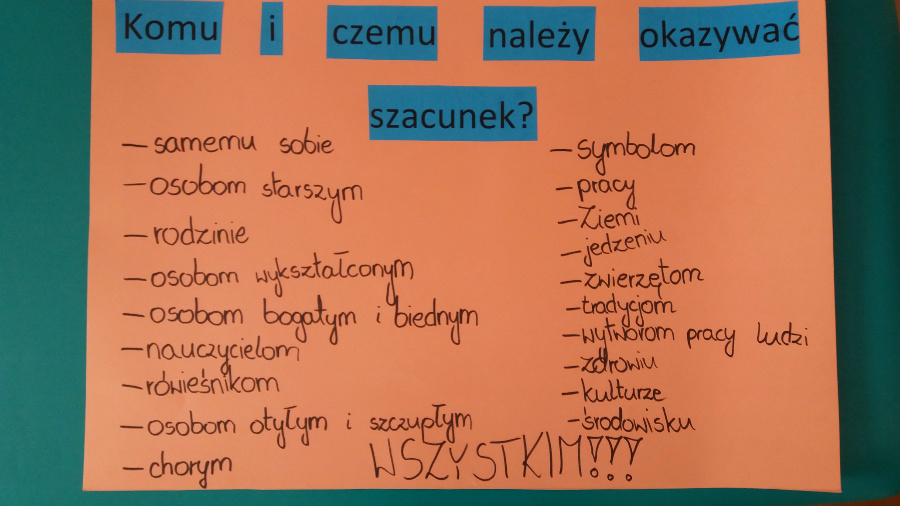 Komu i czemu należy okazywać
szacunek?
– samemu sobie
– osobom starszym
– rodzinie
– osobom wykształconym
– osobom bogatym i biednym
– nauczycielom
– rówieśnikom
– osobom otyłym i szczupłym
– chorym
– symbolom
– pracy
– Ziemi
– jedzeniu
– zwierzętom
– tradycjom
– wytworom pracy ludzi
– zdrowiu
– kulturze
– środowisku
WSZYSTKIM!!!